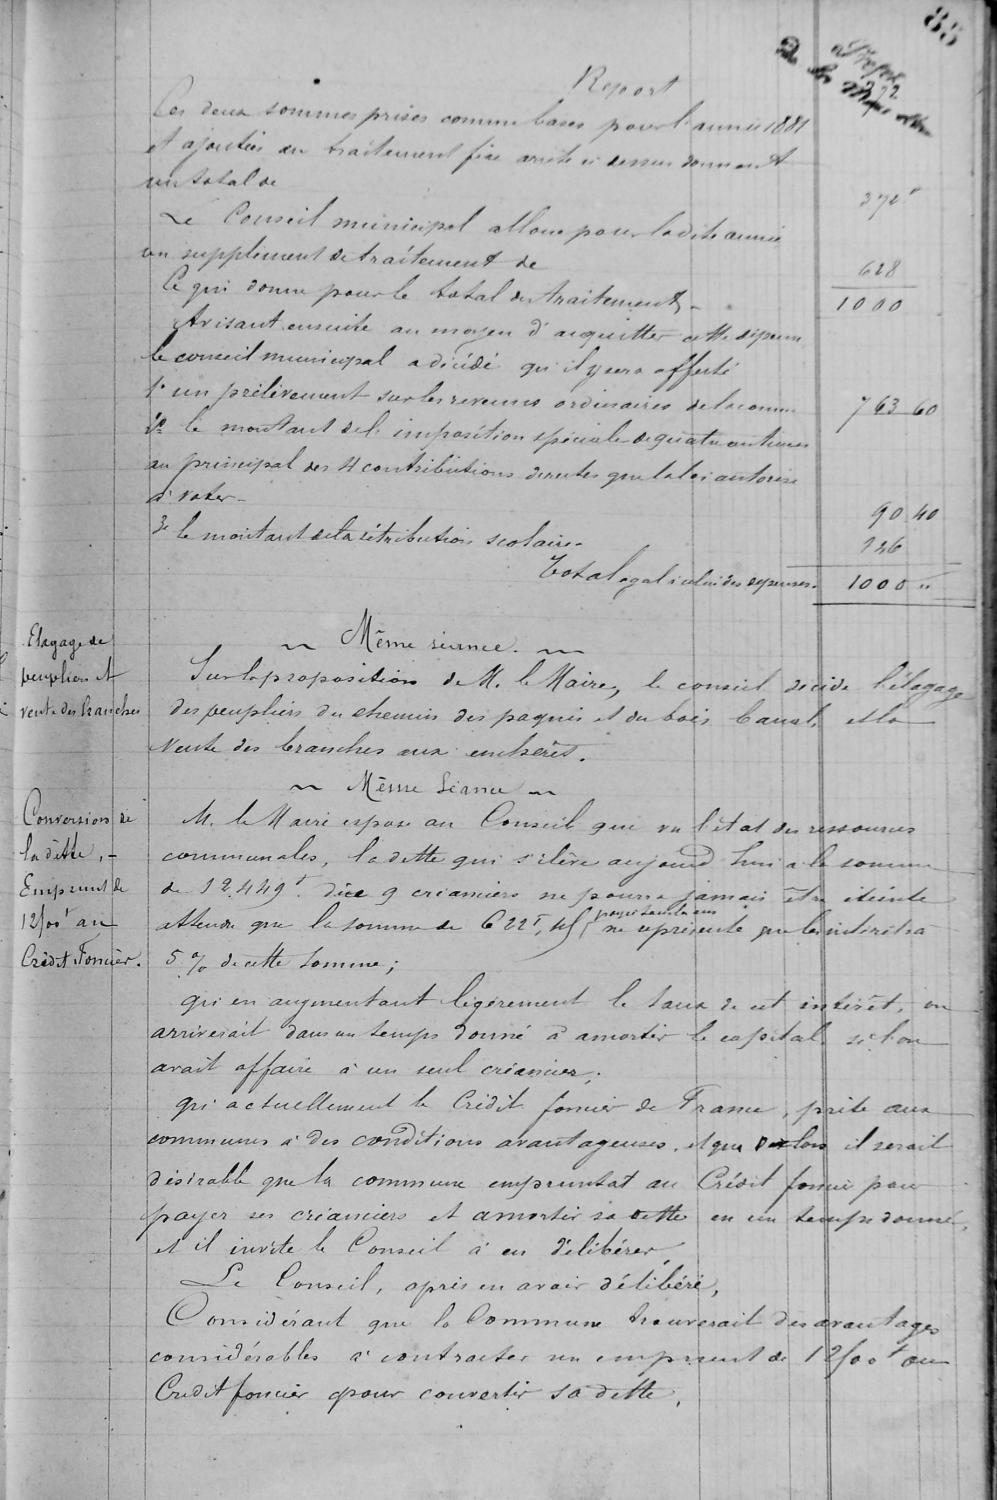 88
Report 372
Ces deux sommes prises comme bases pour l'année 1881
et ajoutées au traitement fixe arrêté ci dessus donnent
un total de 372f
Le Conseil municipal alloue pour ladite année
un supplément de traitement de 628
Ce qui donne pour le total des traitements 1000
Avisant ensuite au moyen d'acquitter cette dépense
le conseil municipal a décidé qu'il y sera affecté
1° un prélèvement sur les revenus ordinaires de la comm 763 60
2° le montant de l'imposition spéciale de quatre centimes
au principal des 4 contributions directes que la loi autorise
à voter 90 40
3° le montant de la rétribution scolaire 146
Total égal à celui des dépenses. 1000 "
Même séance.
Elagage de
peupliers et
vente des branches
Sur la proposition de M. le Maire, le conseil décide l'élagage
des peupliers du chemin des paquis et du bois banal, et la
vente des branches aux enchères.
Même Séance
Conversion de
la dette, -
Emprunt de
12500f au
Crédit Foncier.
M. le Maire expose au Conseil que vu l'état des ressources
communales, la dette qui s'élève aujourd'hui à la somme
de 12.449f due à 9 créanciers ne pourra jamais être éteinte
attendu que la somme de 622f,45 payée tous les ans ne représente que les intérêts à
5 % de cette somme;
qu'en augmentant légèrement le taux de cet intérêt, on
arriverait dans un temps donné à amortir le capital si l'on
avait affaire à un seul créancier;
qu'actuellement le Crédit foncier de France, prête aux
communes à des conditions avantageuses, et que dès lors il serait
désirable que la commune empruntat au Crédit foncier pour
payer ses créanciers et amortir sa dette en un temps donné,
et il invite le Conseil à en délibérer
Le Conseil, après en avoir délibéré,
Considérant que la Commune trouverait des avantages
considérables à contracter un emprunt de 12500f au
Crédit foncier pour convertir sa dette,